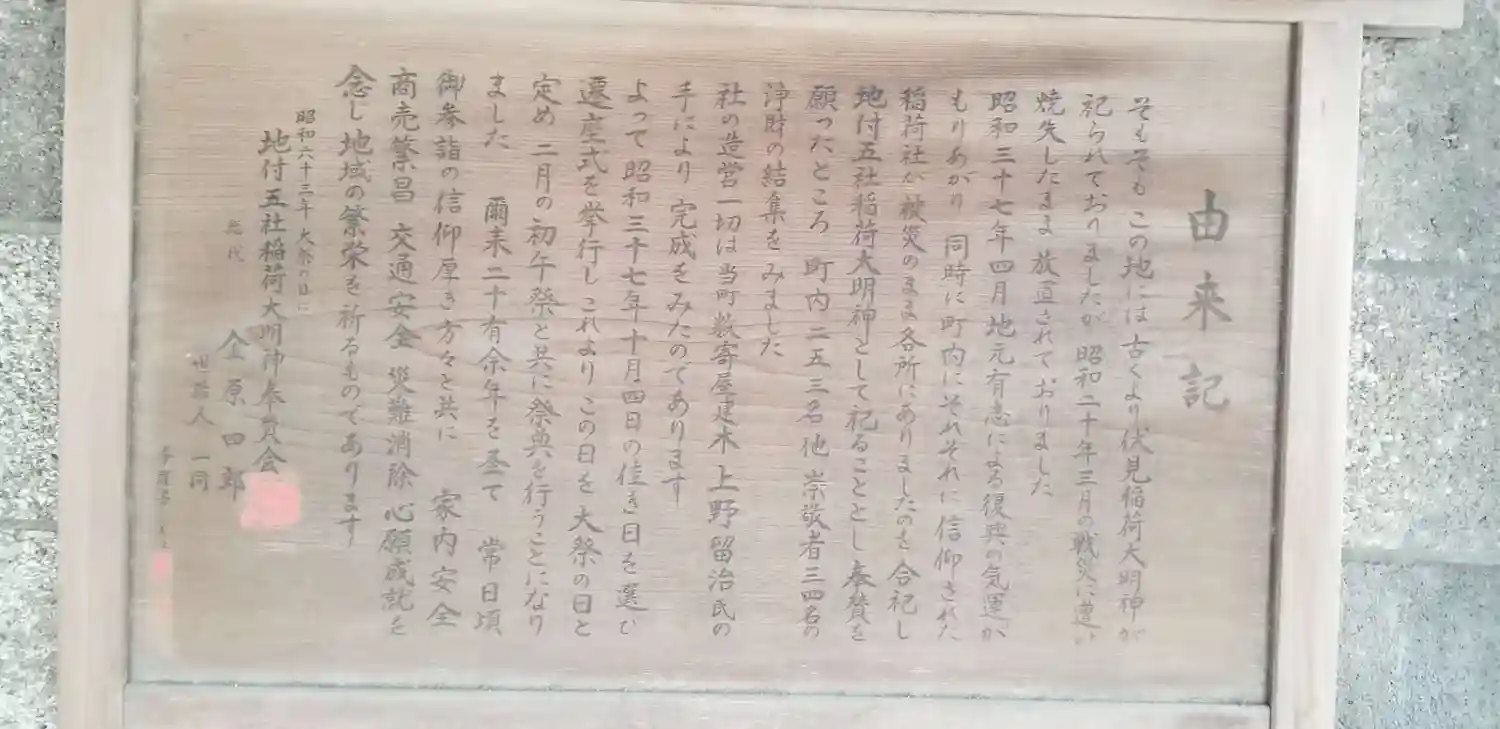 由来記
そもそも この地には古くより伏見稲荷大明神が
祀られておりましたが 昭和二十年三月の戦災に遭い
焼失したまま 放置されておりました
昭和三十七年四月地元有志による復興の気運が
もりあがり 同時に町内にそれぞれに信仰された
稲荷社が被災のまま各所にありましたのを合祀し
地付五社稲荷大明神として祀ることとし奉賛を
願ったところ 町内二五三名他 崇敬者三四名の
浄財の結集をみました
社の造営一切は当町数寄屋建木上野留治氏の
手により 完成をみたのであります
よって昭和三十七年十月四日の佳き日を選び
遷座式を挙行しこれよりこの日を大祭の日と
定め 二月の初午祭と共に祭典を行うことになり
ました 爾来二十有余年を歪て 常日頃
御参詣の信仰厚き方々と共に 家内安全
商売繁昌 交通安全 災難消除 心願成就を
念じ地域の繁栄を祈るものであります
昭和六十三年大祭の日に
地付五社稲荷大明神奉賛会
総代 金原四郎
世話人 一同